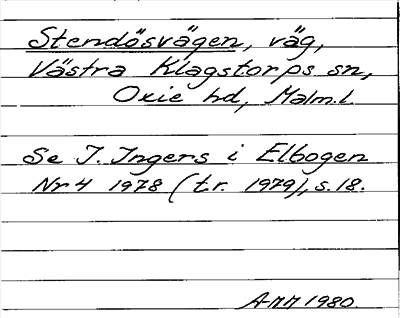 Stendösvägen, väg,
Västra Klagstorps sn,
Oxie hd, Malm.l.
Se I. Ingers i Elbogen
Nr 4 1978 (tr. 1979), s. 18.
AMM 1980.